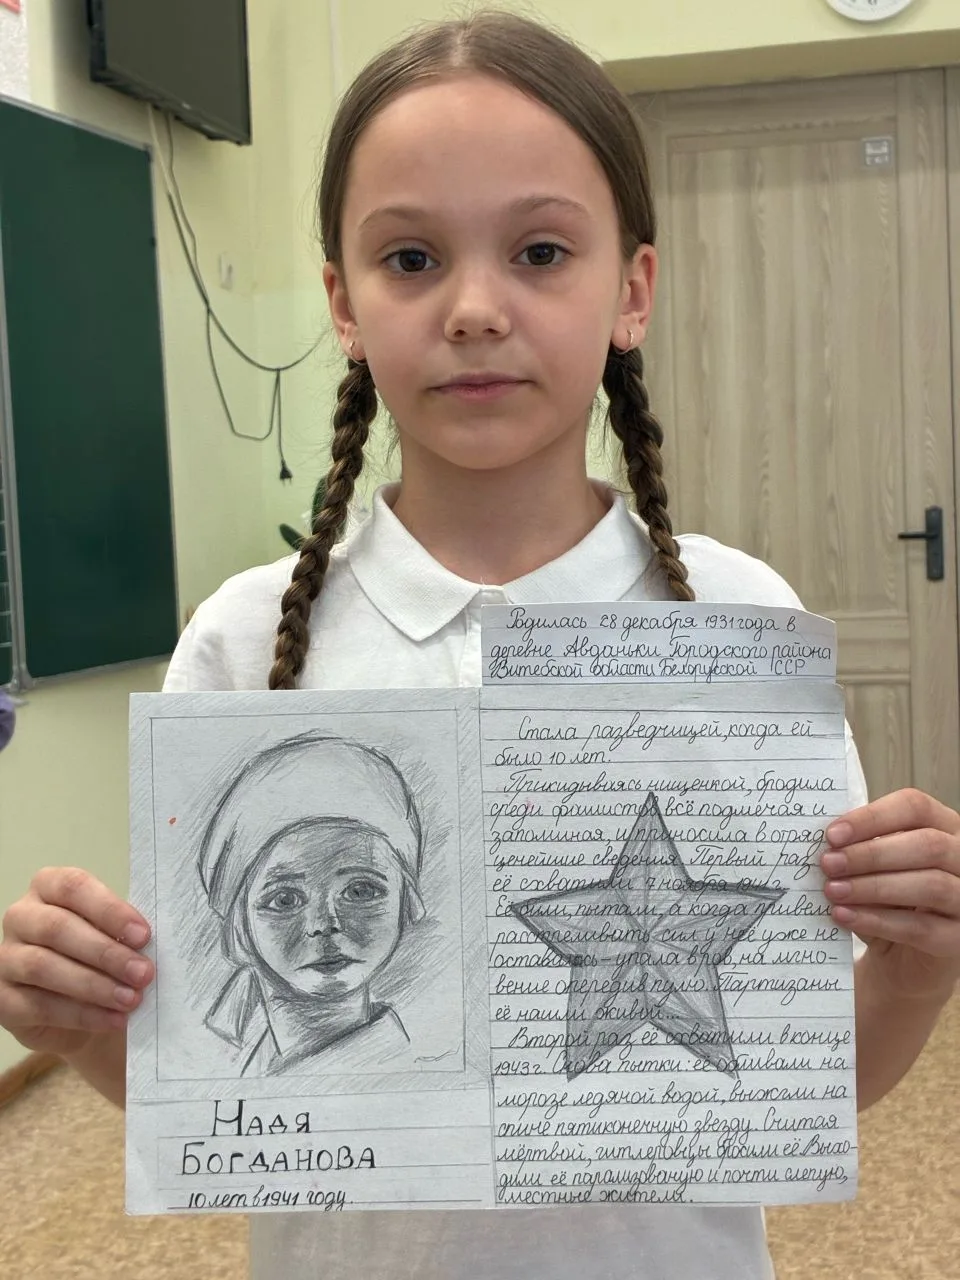 Надя
Богданова
10 лет в 1941 году.
Родилась 28 декабря 1931 года в
деревне Авданьки Городского района
Витебской области Белорусской ССР
Стала разведчицей, когда ей
было 10 лет.
Прикидываясь нищенкой, бродила
среди фашистов всё подмечая и
запоминая, и приносила в отряд
ценейшие сведения. Первый раз
её схватили 7 ноября 1941 г.
Её били, пытали, а когда привели
расстреливать сил у неё уже не
оставалось – упала в ров, на мгно-
вение опередив пулю. Партизаны
её нашли живой...
Второй раз её схватили в конце
1943 г. Снова пытки: её обливали на
морозе ледяной водой, выжгли на
спине пятиконечную звезду. Считая
мёртвой, гитлеровцы бросили её. Выхо-
дили её парализованую и почти слепую,
местные жители.